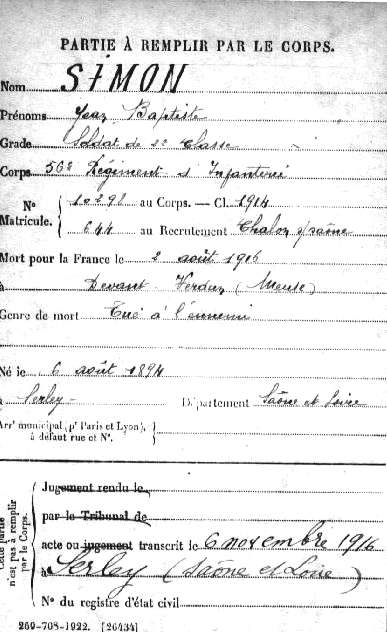 PARTIE À REMPLIR PAR LE CORPS.
Nom SIMON
Prénoms Jean Baptiste
Grade Soldat de 2e Classe
Corps 56e Régiment d'Infanterie
N° Matricule. 10292 au Corps. — Cl. 1914
644 au Recrutement Chalon s/saône
Mort pour la France le 2 août 1916
à Devant Verdun (Meuse)
Genre de mort Tué à l'ennemi
Né le 6 août 1894
à Serley Département Saône et Loire
Arrt municipal (pr Paris et Lyon), à défaut rue et N°.
Cette partie n'est pas à remplir par le Corps.
Jugement rendu le
par le Tribunal de
acte ou jugement transcrit le 6 novembre 1916
à Serley (Saône et Loire)
N° du registre d'état civil
269-708-1922. [26434]